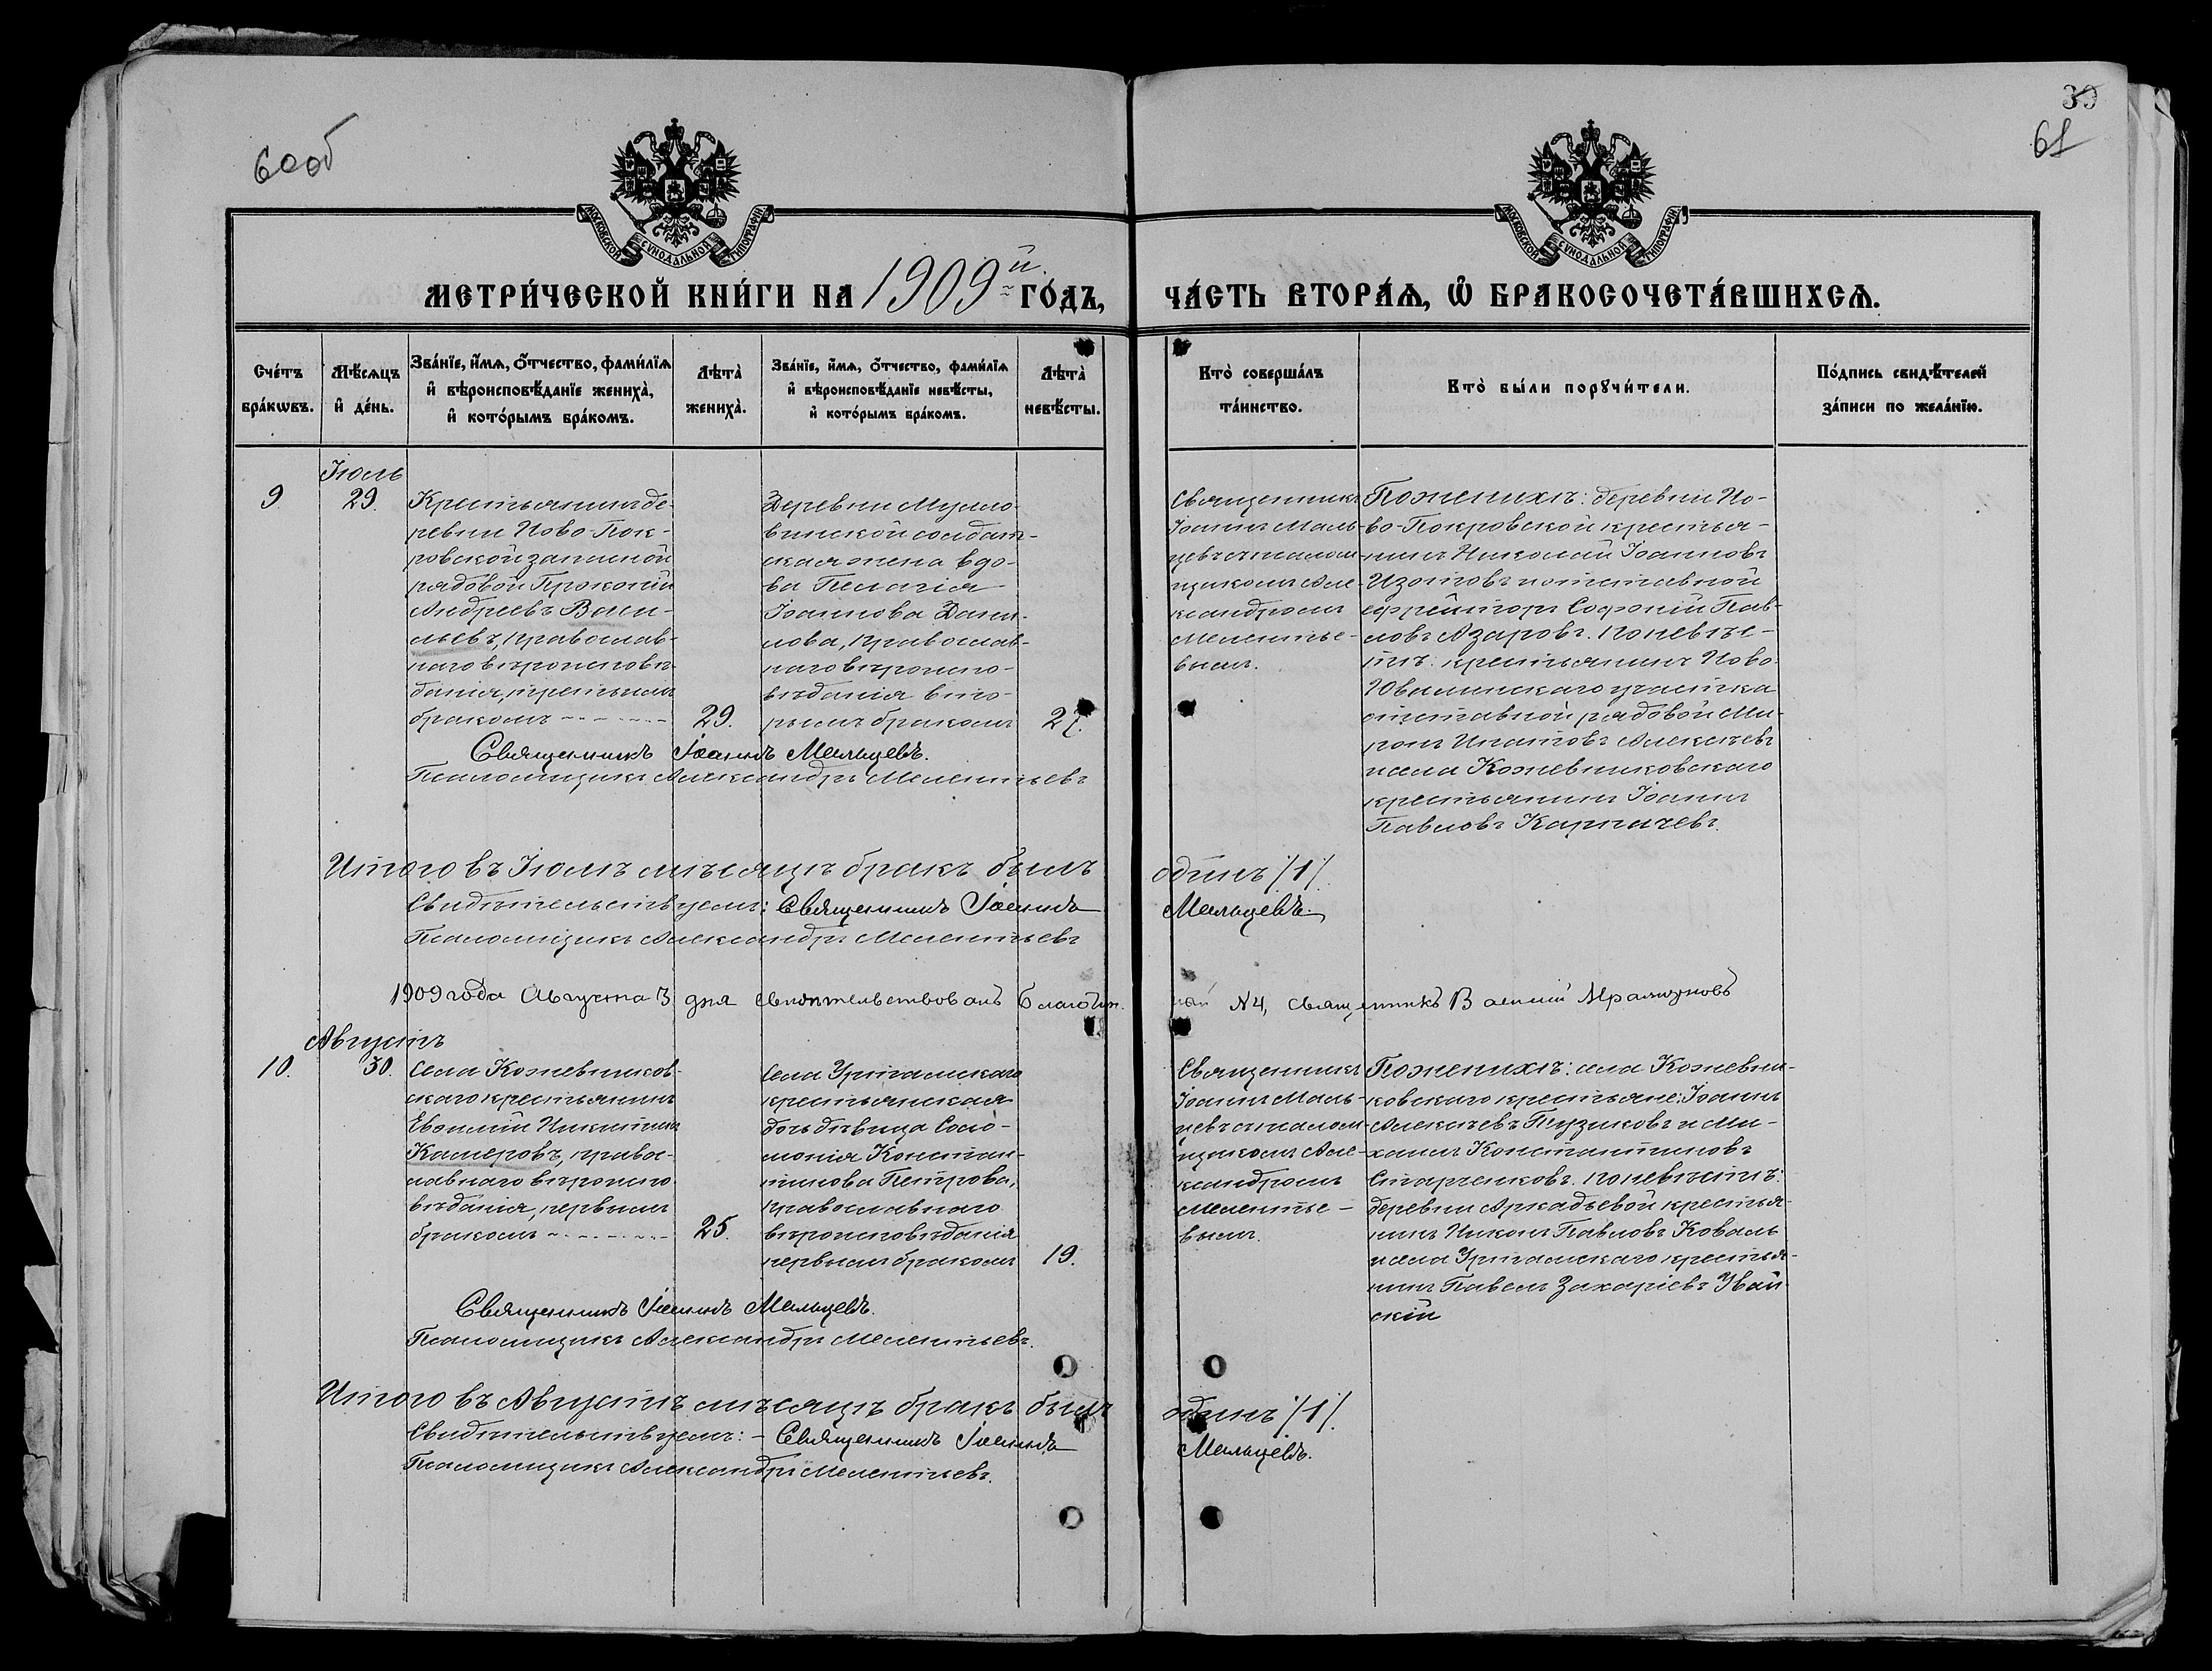 60об
39
61
МОСКОВСКОЙ СѴНОДАЛЬНОЙ ТИПОГРАФІИ
МОСКОВСКОЙ СѴНОДАЛЬНОЙ ТИПОГРАФІИ
МЕТРИ́ЧЕСКОЙ КНИ́ГИ НА 1909й ГО́ДЪ,
ЧА́СТЬ ВТОРА́Ѧ, Ѡ҆ БРАКОСОЧЕТА́ВШИХСѦ.
Сче́тъ
бра́кѡвъ.
Мѣ́сѧцъ
и҆ де́нь.
Зва́нїе, и҆́мѧ, ѻ҆́тчество, фами́лїѧ
и҆ вѣроисповѣ́данїе жениха̀,
и҆ кото́рымъ бра́комъ.
Лѣта̀
жениха̀.
Зва́нїе, и҆́мѧ, ѻ҆́тчество, фами́лїѧ
и҆ вѣроисповѣ́данїе невѣ́сты,
и҆ кото́рымъ бра́комъ.
Лѣта̀
невѣ́сты.
Кто̀ соверша́лъ
та́инство.
Кто̀ бы́ли порꙋчи́тели.
По́дпись свидѣ́телей
за́писи по жела́нїю.
Іюль
9
29.
Крестьянинъ де-
ревни Ново-Пок-
ровской запасной
рядовой Прокопій
Андреевъ Васи-
льевъ, православ-
наго вѣроисповѣ-
данія, третьимъ
бракомъ
29.
Деревни
солдат-
ская жена вдо-
ва Пелагія
Іоаннова Дани-
лова, православ-
наго вѣроиспо-
вѣданія вто-
рымъ бракомъ
27.
Священникъ
Іоаннъ Маль-
цевъ съ псалом-
щикомъ Але-
ксандромъ
Мелентье-
вымъ.
По женихѣ: деревни Но-
во-Покровской крестья-
нинъ Николай Іоанновъ
Изотовъ и отставной
ефрейторъ Софоній Пав-
ловъ Азаровъ. По невѣс-
тѣ: крестьянинъ Ново-
Ювалинскаго участка
отставной рядовой Ми-
ронъ Игнатовъ Алексѣевъ
и села Кожевниковскаго
крестьянинъ Іоаннъ
Павловъ Карпачевъ.
Священникъ Іоаннъ Мальцевъ.
Псаломщикъ Александръ Мелентьевъ
Итого въ Іюлѣ мѣсяцѣ бракъ былъ
одинъ /1/.
Свидѣтельствуемъ: Священникъ Іоаннъ
Мальцевъ.
Псаломщикъ Александръ Мелентьевъ
1909 года Августа 3 дня свидѣтельствовалъ Благочин.
ный №4, священникъ Василий
Августъ
10.
30.
Села Кожевников-
скаго крестьянинъ
Евфимій Никитинъ
Камеровъ, право-
славнаго вѣроиспо-
вѣданія, первымъ
бракомъ
25.
Села Уртамскаго
крестьянская
дочь дѣвица Соло-
монія Констан-
тинова Петрова,
православнаго
вѣроисповѣданія
первымъ бракомъ
19.
Священникъ
Іоаннъ Маль-
цевъ съ псалом-
щикомъ Але-
ксандромъ
Мелентье-
вымъ.
По женихѣ: села Кожевни-
ковскаго крестьяне: Іоаннъ
Алексѣевъ Пузиковъ и Ми-
хаилъ Константиновъ
Старченковъ. По невѣстѣ:
деревни Аркадьевой крестья-
нинъ Никонъ Павловъ Коваль
и села Уртамскаго крестья-
нинъ Павелъ Захаріевъ Увай-
скій
Священникъ Іоаннъ Мальцевъ.
Псаломщикъ Александръ Мелентьевъ.
Итого въ Августѣ мѣсяцѣ бракъ былъ
одинъ /1/.
Свидѣтельствуемъ: - Священникъ Іоаннъ
Мальцевъ.
Псаломщикъ Александръ Мелентьевъ.